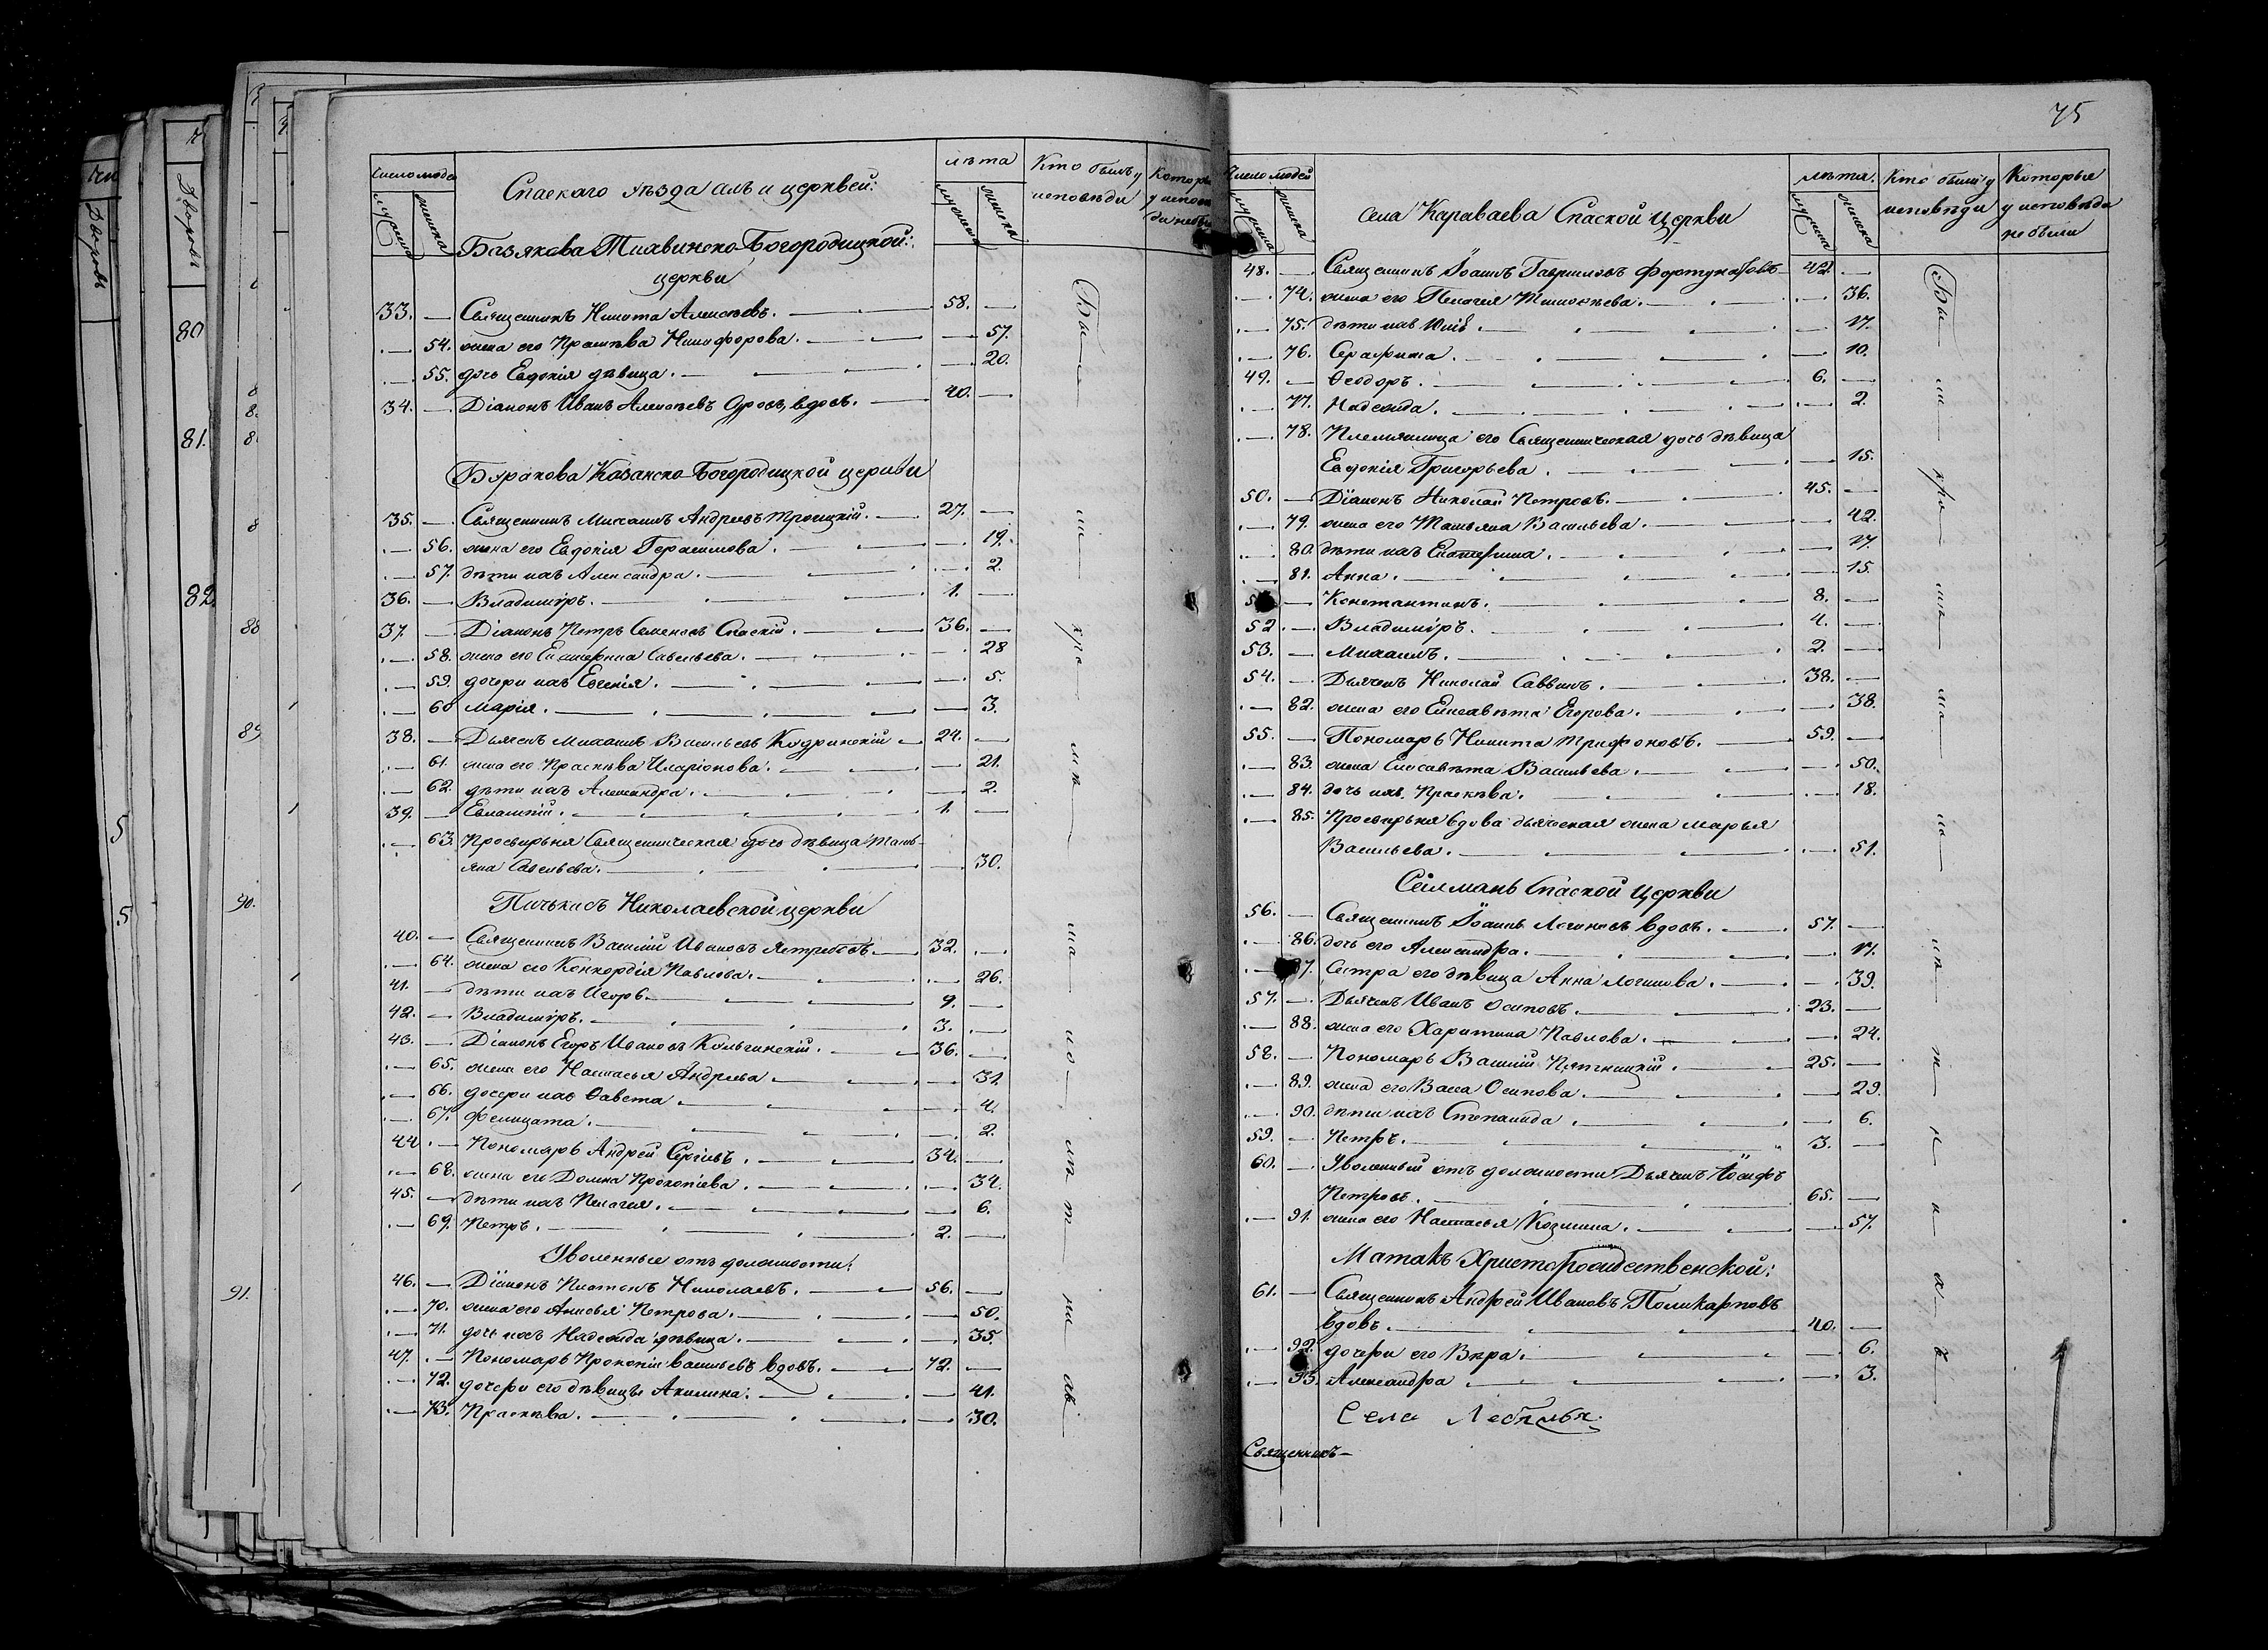 75
Число людей
мужеска
женска
Спаскаго уѣзда селъ и церквей:
лѣта
мужеска
женска
Кто былъ у исповѣди
Базякова Тихвинско-Богородицкой:
церкви
33. — Священникъ Никита Алексѣевъ. — 58. —
— 54. жена его Прасковья Никифорова. — 57.
— 55. дочь Евдокія дѣвица. — 20.
34. — Діаконъ Иванъ Алексѣевъ вдовъ. — 40. —
Буракова Казанско-Богородицкой церкви
35. — Священникъ Михаилъ Андреевъ Троицкій. — 27. —
— 56. жена его Евдокія Герасимова. — 19.
— 57. дѣти ихъ Александра. — 2.
36. — Владиміръ. — 1. —
37. — Діаконъ Петръ Семеновъ Спаскій. — 36. —
— 58. жена его Екатерина Савельева. — 28
— 59. дочери ихъ Евгенія. — 5.
— 60 Марія. — 3.
38. — Дьячекъ Михаилъ Васильевъ Кудринскій — 24. —
— 61. жена его Прасковья Иларіонова. — 21.
— 62. дѣти ихъ Александра. — 2.
39. — Евлампій. — 1. —
— 63. Просвирня Священническая дочь дѣвица Тать-
яна Савельева. — 30.
Пичькасъ Николаевской церкви
40. — Священникъ Василій Ивановъ Ястребовъ — 32. —
— 64. жена его Конкордія Павлова. — 26.
41. — дѣти ихъ Игорь. — 9. —
42. — Владиміръ. — 3. —
43. — Діаконъ Егоръ Ивановъ Кольчинскій. — 36. —
— 65. жена его Настасья Андреева — 31.
— 66. дочери ихъ Ѳавста — 4.
— 67. Фелицата. — 2.
44. — Пономарь Андрей Сергіевъ. — 34. —
— 68. жена его Домна Прокопіева. — 34.
45. — дѣти ихъ Пелагея. — 6.
— 69. Петръ. — 2. —
Уволенные отъ должности:
46. — Діаконъ Платонъ Николаевъ. — 56. —
— 70. жена его Анисья Петрова. — 50.
— 71. дочь ихъ Надежда дѣвица. — 35.
47. — Пономарь Прокопій Васильевъ вдовъ. — 72. —
— 72. дочери его дѣвицы Акилина. — 41.
— 73. Прасковья. — 30.
Число людей
мужеска
женска
села Караваева Спаской Церкви
лѣта.
мужеска
женска
Кто былъ у исповѣди
Которые у исповѣди не были
48. — Священникъ Іоаннъ Гавриловъ Фортунатовъ — 42. —
— 74. жена его Пелагея Тимоѳеева. — 36.
— 75. дѣти ихъ Юлія. — 17.
— 76. Серафима. — 10.
49. — Ѳеодоръ. — 6. —
— 77. Надежда. — 2.
— 78. Племянница его Священническая дочь дѣвица
Евдокія Григорьева. — 15.
50. — Діаконъ Николай Петровъ. — 45. —
— 79. жена его Татьяна Васильева. — 42.
— 80. дѣти ихъ Екатерина. — 17.
— 81. Анна. — 15.
— Константинъ. — 8. —
52. — Владиміръ. — 4. —
53. — Михаилъ. — 2. —
54. — Дьячекъ Николай Саввинъ. — 38. —
— 82. жена его Елисавѣта Егорова. — 38.
55. — Пономарь Никита Трифоновъ. — 59. —
— 83. жена Елисавѣта Васильева. — 50.
— 84. дочь ихъ Прасковья. — 18.
— 85. Просвирня вдова дьяческая жена Марья
Васильева. — 51.
Сеилмань Спаской Церкви
56. — Священникъ Іоаннъ Логиновъ вдовъ. — 57. —
— 86. дочь его Александра. — 17.
— 87. Сестра его дѣвица Анна Логинова. — 39.
57. — Дьячекъ Иванъ Осиповъ. — 23. —
— 88. жена его Харитина Павлова. — 24.
58. — Пономарь Василій Пятницкій. — 25. —
— 89. жена его Васса Осипова. — 29.
— 90. дѣти ихъ Степанида. — 6.
59. — Петръ. — 3. —
60. — Уволенный отъ должности Дьячекъ Іосифъ
Петровъ. — 65. —
— 91. жена его Настасья Козмина. — 57.
Матакъ Христорождественской:
61. — Священникъ Андрей Ивановъ Поликарповъ
вдовъ. — 40. —
— 92. дочери его Вѣра. — 6.
— 93. Александра — 3.
Села Лебяжья
Священникъ —